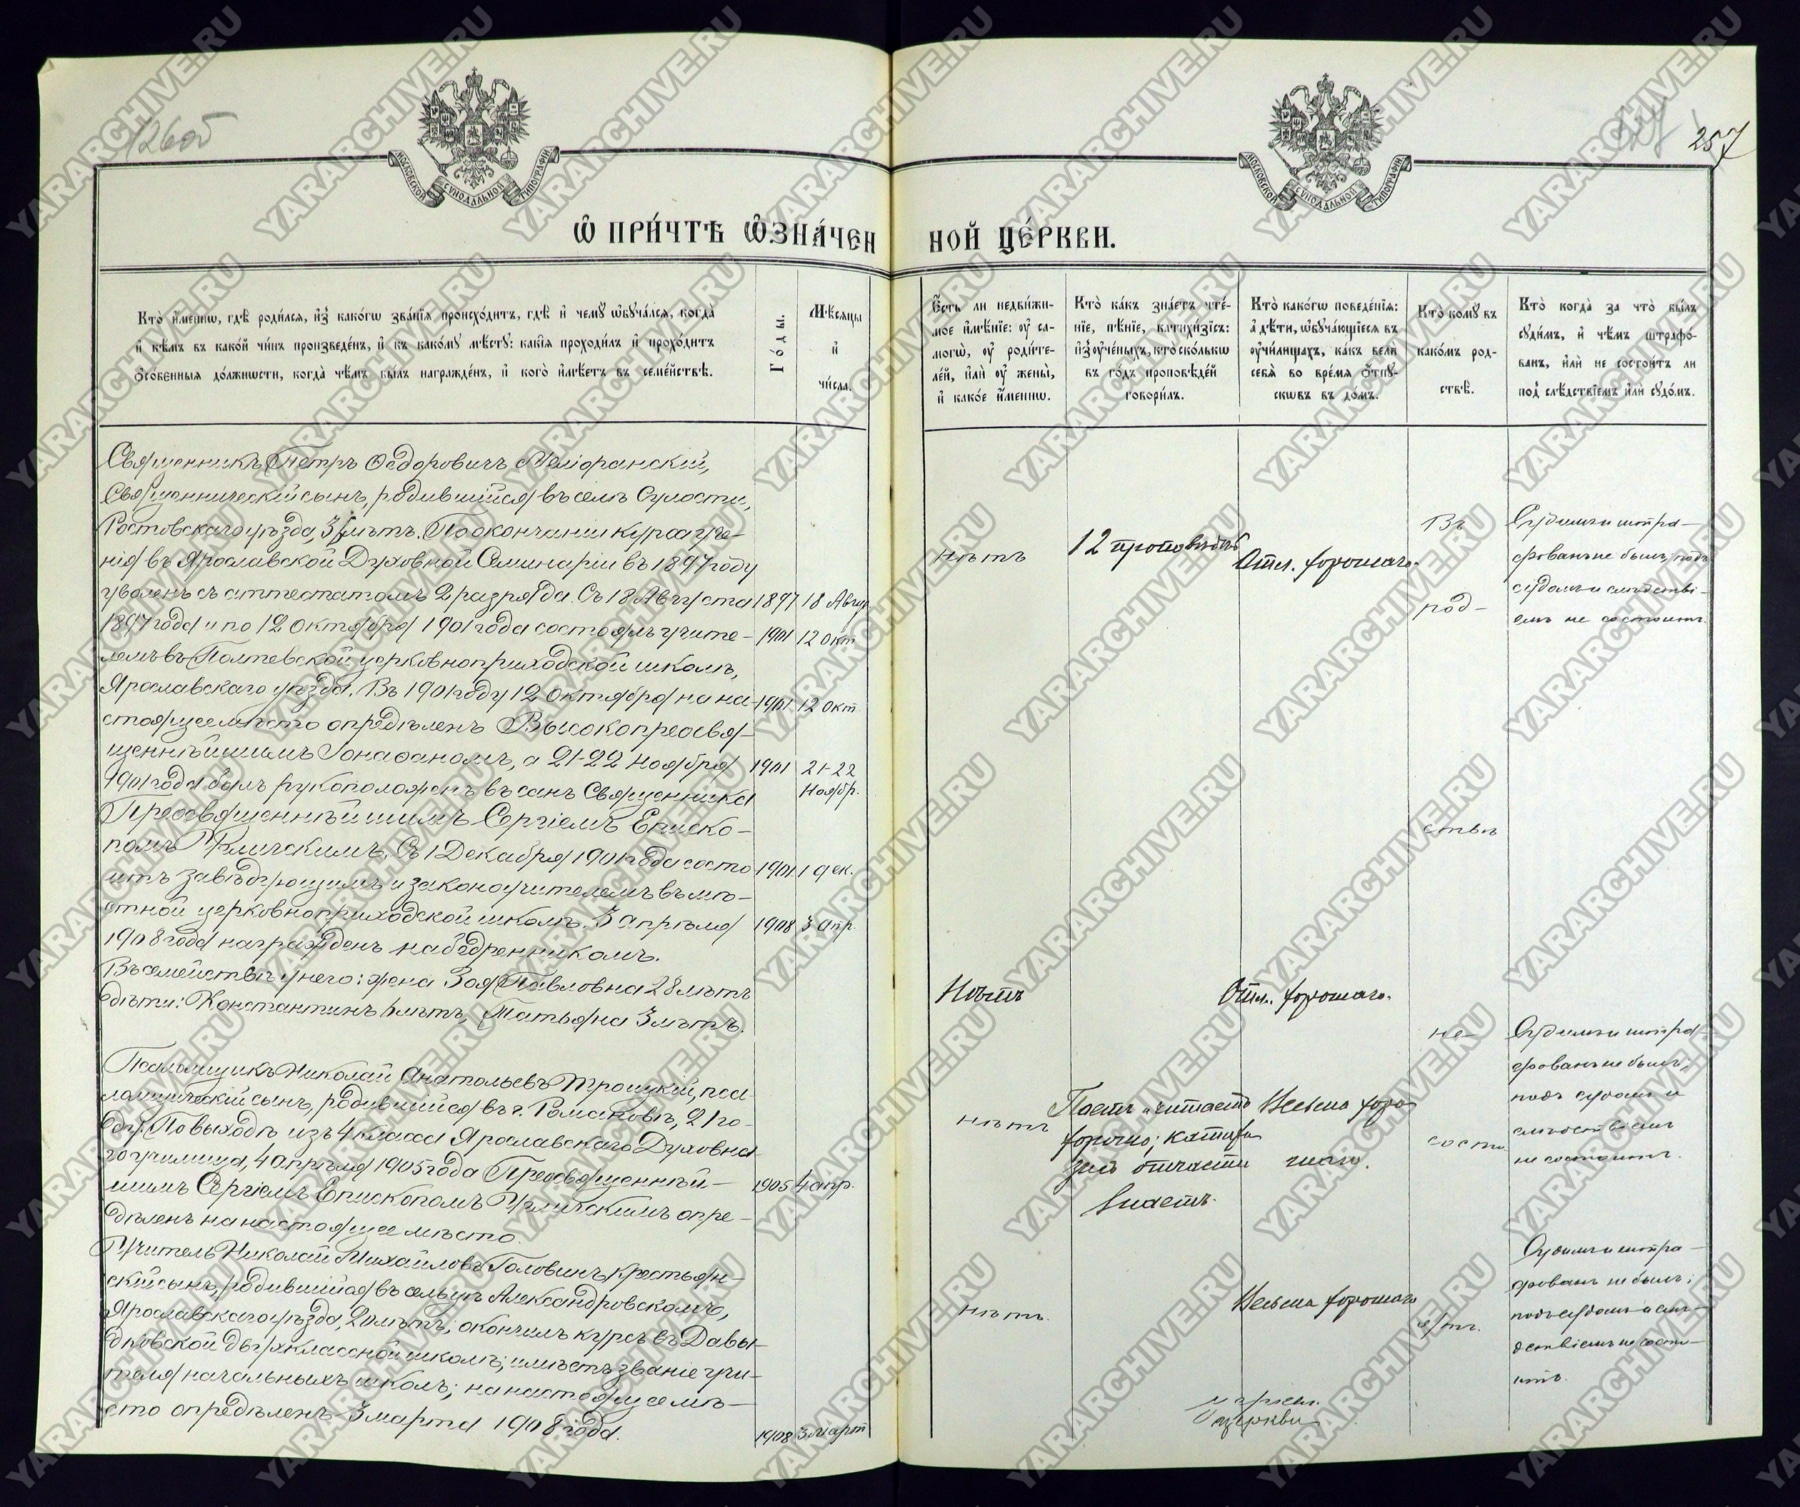 260об
257
МОСКОВСКОЙ СѴНОДАЛЬНОЙ ТИПОГРАФІИ
МОСКОВСКОЙ СѴНОДАЛЬНОЙ ТИПОГРАФІИ
Ѡ ПРИ́ЧТѢ Ѡ҆ЗНА́ЧЕННОЙ ЦЕ́РКВИ.
Кто̀ и҆́меннѡ, гдѣ̀ роди́лсѧ, и҆з̾ како́гѡ зва́нїѧ происхо́дитъ, гдѣ̀ и҆ чемꙋ̀ ѡ҆бꙋча́лсѧ, когда̀
и҆ кѣ́мъ въ како́й чи́нъ произведе́нъ, и҆ къ како́мꙋ мѣ́стꙋ: какі̑ѧ проходи́лъ и҆ прохо́дитъ
ѻ҆со́бенныѧ до́лжности, когда̀ чѣ́мъ бы́лъ награжде́нъ, и҆ кого̀ и҆мѣ́етъ въ семе́йствѣ.
Го́ды.
Мѣ́сѧцы
и҆
чи́сла.
Е҆́сть ли недви́жи-
мое и҆мѣ́нїе: ᲂу҆ са-
могѡ̀, ᲂу҆ роди́те-
лей, и҆лѝ ᲂу҆ жены̀,
и҆ како́е и҆́меннѡ.
Кто̀ ка́къ зна́етъ чте́-
нїе, пѣ́нїе, катихи́зїсъ:
и҆з̾ ᲂу҆че́ныхъ, кто̀ ско́лькѡ
въ го́дъ проповѣ́дей
говори́лъ.
Кто̀ како́гѡ поведе́нїѧ:
а҆ дѣ́ти, ѡ҆бꙋча́ющїесѧ въ
ᲂу҆чи́лищахъ, ка́къ велѝ
себѧ̀ во вре́мѧ ѿпꙋ-
скѡвъ въ до́мъ.
Кто̀ комꙋ̀ въ
како́мъ род-
ствѣ̀.
Кто̀ когда̀ за что̀ бы́лъ
сꙋди́мъ, и҆ чѣ́мъ штрафо́-
ванъ, и҆лѝ не состои́тъ ли
под̾ слѣ́дствїемъ и҆лѝ сꙋдо́мъ.
Священникъ Петръ Ѳедоровичъ Меліоранскій,
Священническій сынъ, родившійся въ селѣ Сулости,
Ростовскаго уѣзда, лѣтъ. По окончаніи курса уче-
нія въ Ярославской Духовной Семинаріи въ 1897 году
уволенъ съ аттестатомъ 2 разряда. Съ 18 Августа 1897 18 Авгус.
1897 года и по 12 Октября 1901 года состоялъ учите- 1901 12 Окт.
лемъ въ Полтевской церковноприходской школѣ,
Ярославскаго уѣзда. Въ 1901 году 12 Октября на на- 1901 12 Окт.
стоящее мѣсто опредѣленъ Высокопреосвя-
щеннѣйшимъ Іонаѳаномъ, а 21-22 Ноября 1901 21-22 Ноябр.
1901 года былъ рукоположенъ въ санъ Священника
Преосвященнѣйшимъ Сергіемъ Еписко-
помъ Угличскимъ. Съ 1 Декабря 1901 года состо- 1901 1 дек.
итъ завѣдующимъ и законоучителемъ въ мѣ-
стной церковноприходской школѣ. 3 апрѣля 1908 3 апр.
1908 года награжденъ набедренникомъ.
Въ семействѣ у него: жена Зоя Павловна 28 лѣтъ
дѣти: Константинъ 6 лѣтъ, Татьяна 3 лѣтъ.
нѣтъ
12 проповѣдей
Отл. хорошаго.
Въ
род-
ствѣ
Судимъ и штра-
фованъ не былъ, подъ
судомъ и слѣдстві-
емъ не состоитъ.
Нѣтъ
Отл. хорошаго.
Псаломщикъ Николай Анатольевъ Троицкій, пса-
ломническій сынъ, родившійся въ г. Романовѣ, 21 го-
ду. По выходѣ изъ 4 класса Ярославскаго Духовна-
го училища, 4 апрѣля 1905 года Преосвященнѣй-
шимъ Сергіемъ Епископомъ Угличскимъ опре- 1905 4 апр.
дѣленъ на настоящее мѣсто.
нѣтъ
Поетъ и читаетъ
хорошо; катихи-
зисъ отчасти
знаетъ.
Весьма хоро-
шаго.
не-
состо-
Судимъ и штра-
фованъ не былъ,
подъ судомъ и
слѣдствіемъ
не состоитъ.
Учитель Николай Михайловъ Головинъ, крестьян-
скій сынъ, родившійся въ сельцѣ Александровскомъ,
Ярославскаго уѣзда, 20 лѣтъ; окончилъ курсъ въ Давы-
дковской двухклассной школѣ; имѣетъ званіе учи-
теля начальныхъ школъ; на настоящее мѣ-
сто опредѣленъ 3 марта 1908 года. 1908 3 март
нѣтъ.
Весьма хорошаго
ятъ.
Судимъ и штра-
фованъ не былъ;
подъ судомъ и слѣ-
дствіемъ не состо-
итъ.
церкви
YARARCHIVE.RU